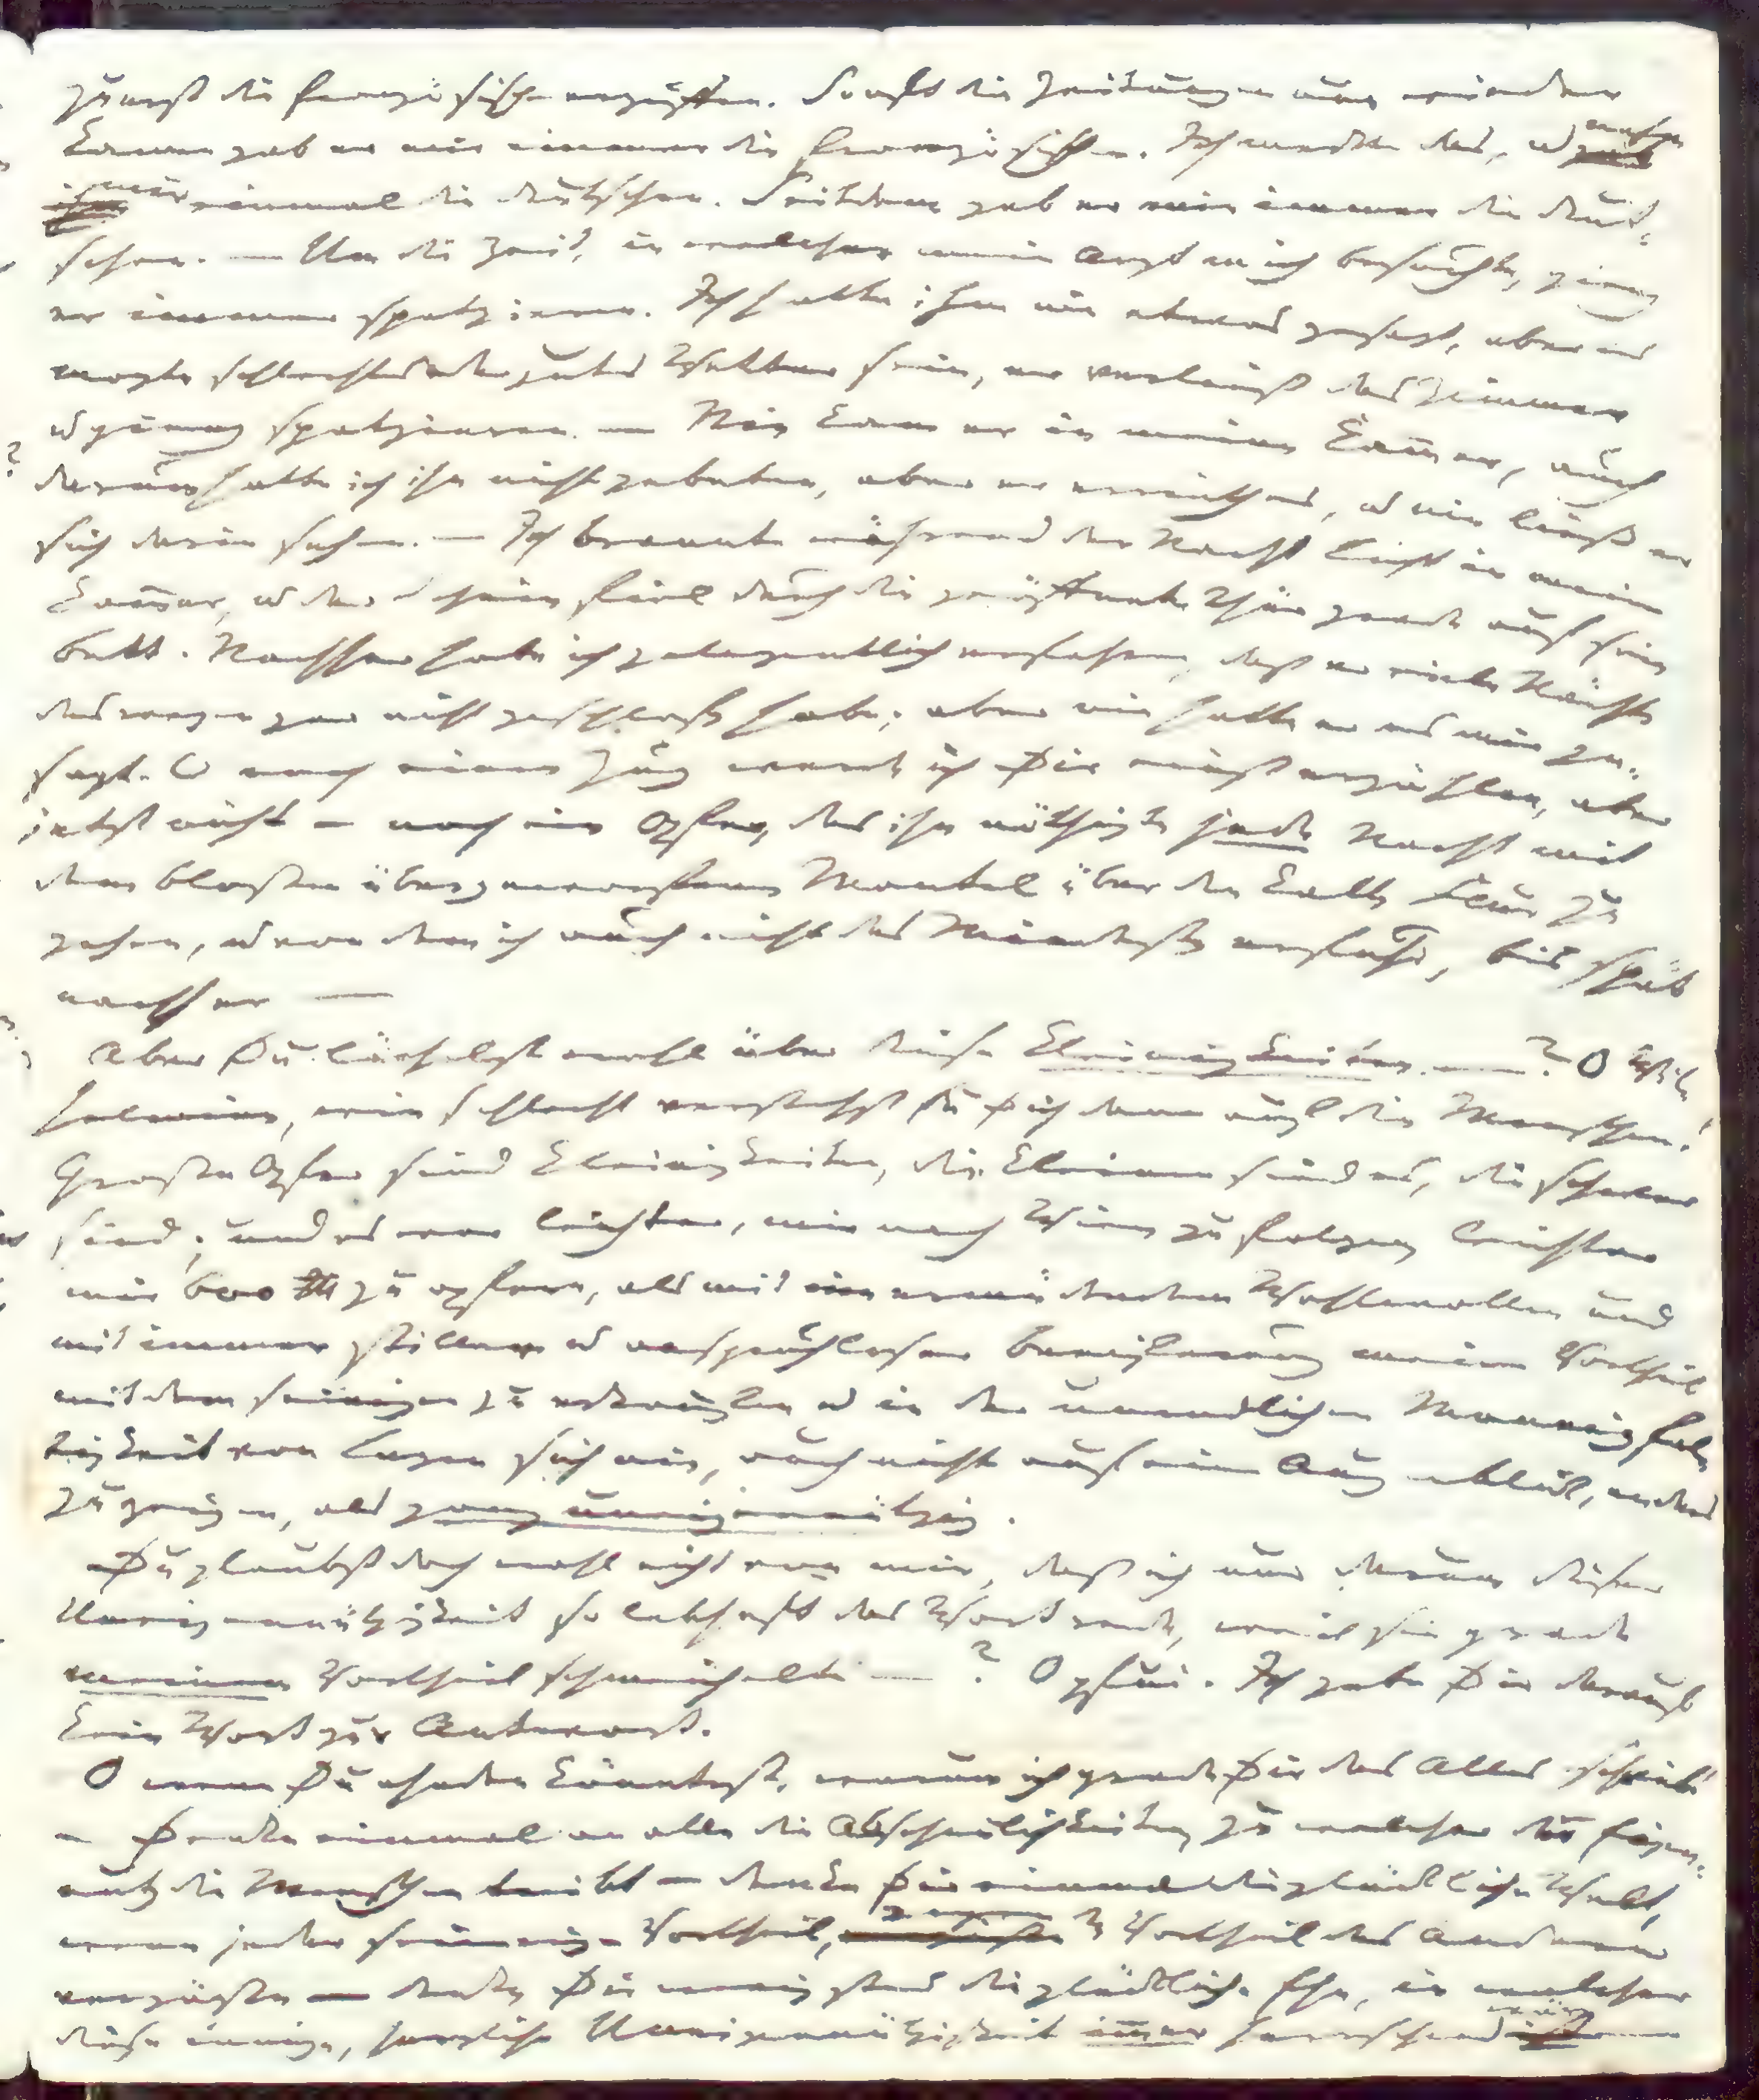 zuerst die französischen ergriffen. Sonst die Zeitungen aus meinem
kamen gab er mir immer die französischen. Ich merkte das, u nahm
mir einmal die deutschen. Seitdem gab er mir immer die deut-
schen. — Um die Zeit, in welcher mein Arzt mich besuchte, ging
er immer spatzieren. Ich hatte ihm nie etwas gesagt, aber es
mogte schlechtes oder gutes Wetter sein, er verließ das Zimmer
u gieng spatzieren. — Nie kam er in meine Kam̅er, auch
darum hatte ich ihn nicht gebeten, aber er errieth es, u nie ließ er
sich darin sehen. — Ich brannte während der Nacht Licht in meiner
Kam̅er, u der Schein fiel durch die geöffnete Thür grade auf sein
Bett. Nachher habe ich gelegentlich erfahren, daß er viele Nächte
deswegen gar nicht geschlafen habe; aber nie hatte er es mir ge-
sagt. O noch einen Zug werde ich Dir einst erzählen, aber
jetzt nicht — noch ein Opfer, das ihn nöthigte jede Nacht mit
dem bloßen übergeworfenen Mantel über den kalten Flur zu
gehen, u von dem ich auch nicht das Mindeste erfuhr, bis spät
nachher —
Aber Du lächelst wohl über diese Kleinigkeiten —? O Wil-
helmine, wie schlecht verstehst Du Dich dann auf die Menschen!
Große Opfer sind Kleinigkeiten, die kleinen sind es, die schwer
sind; und es war leichter, mir nach Wien zu folgen, leichter
mir 600 zu opfern, als mit nie ermüdendem Wohlwollen und
mit immer stiller u anspruchloser Beeiferung meinen Vortheil
mit dem seinigen zu erkaufen u in der unendlichen Mannigfal-
tigkeit von Lagen sich nie, auch nicht auf einen Augenblick, anders
zu zeigen, als ganz uneigennützig.
Du glaubst doch wohl nicht von mir, daß ich nur darum dieser
Uneigennützigkeit so lebhaft das Wort rede, weil sie grade
meinem Vortheil schmeichelte —? O pfui. Ich gebe Dir darauf
kein Wort zur Antwort.
O wenn Du ahnden könntest, warum ich grade Dir das Alles schreibe!
— Denke einmal an alle die Abscheulichkeiten, zu welchen der Eigen-
nutz die Menschen treibt — denke Dir einmal die glückliche Welt,
wenn jeder seinen eignen Vortheil, gegen den Vortheil des Andern
vergäße — denke Dir wenigstens die glückliche Ehe, in welcher
diese innige, herzliche Uneigennützigkeit im̅er herrschend wäre —